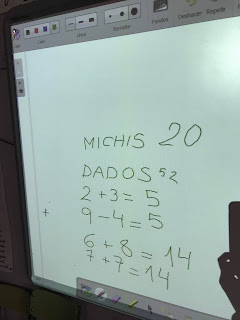 MICHIS 20
DADOS 52
2+3=5
9-4=5
6+8=14
7+7=14